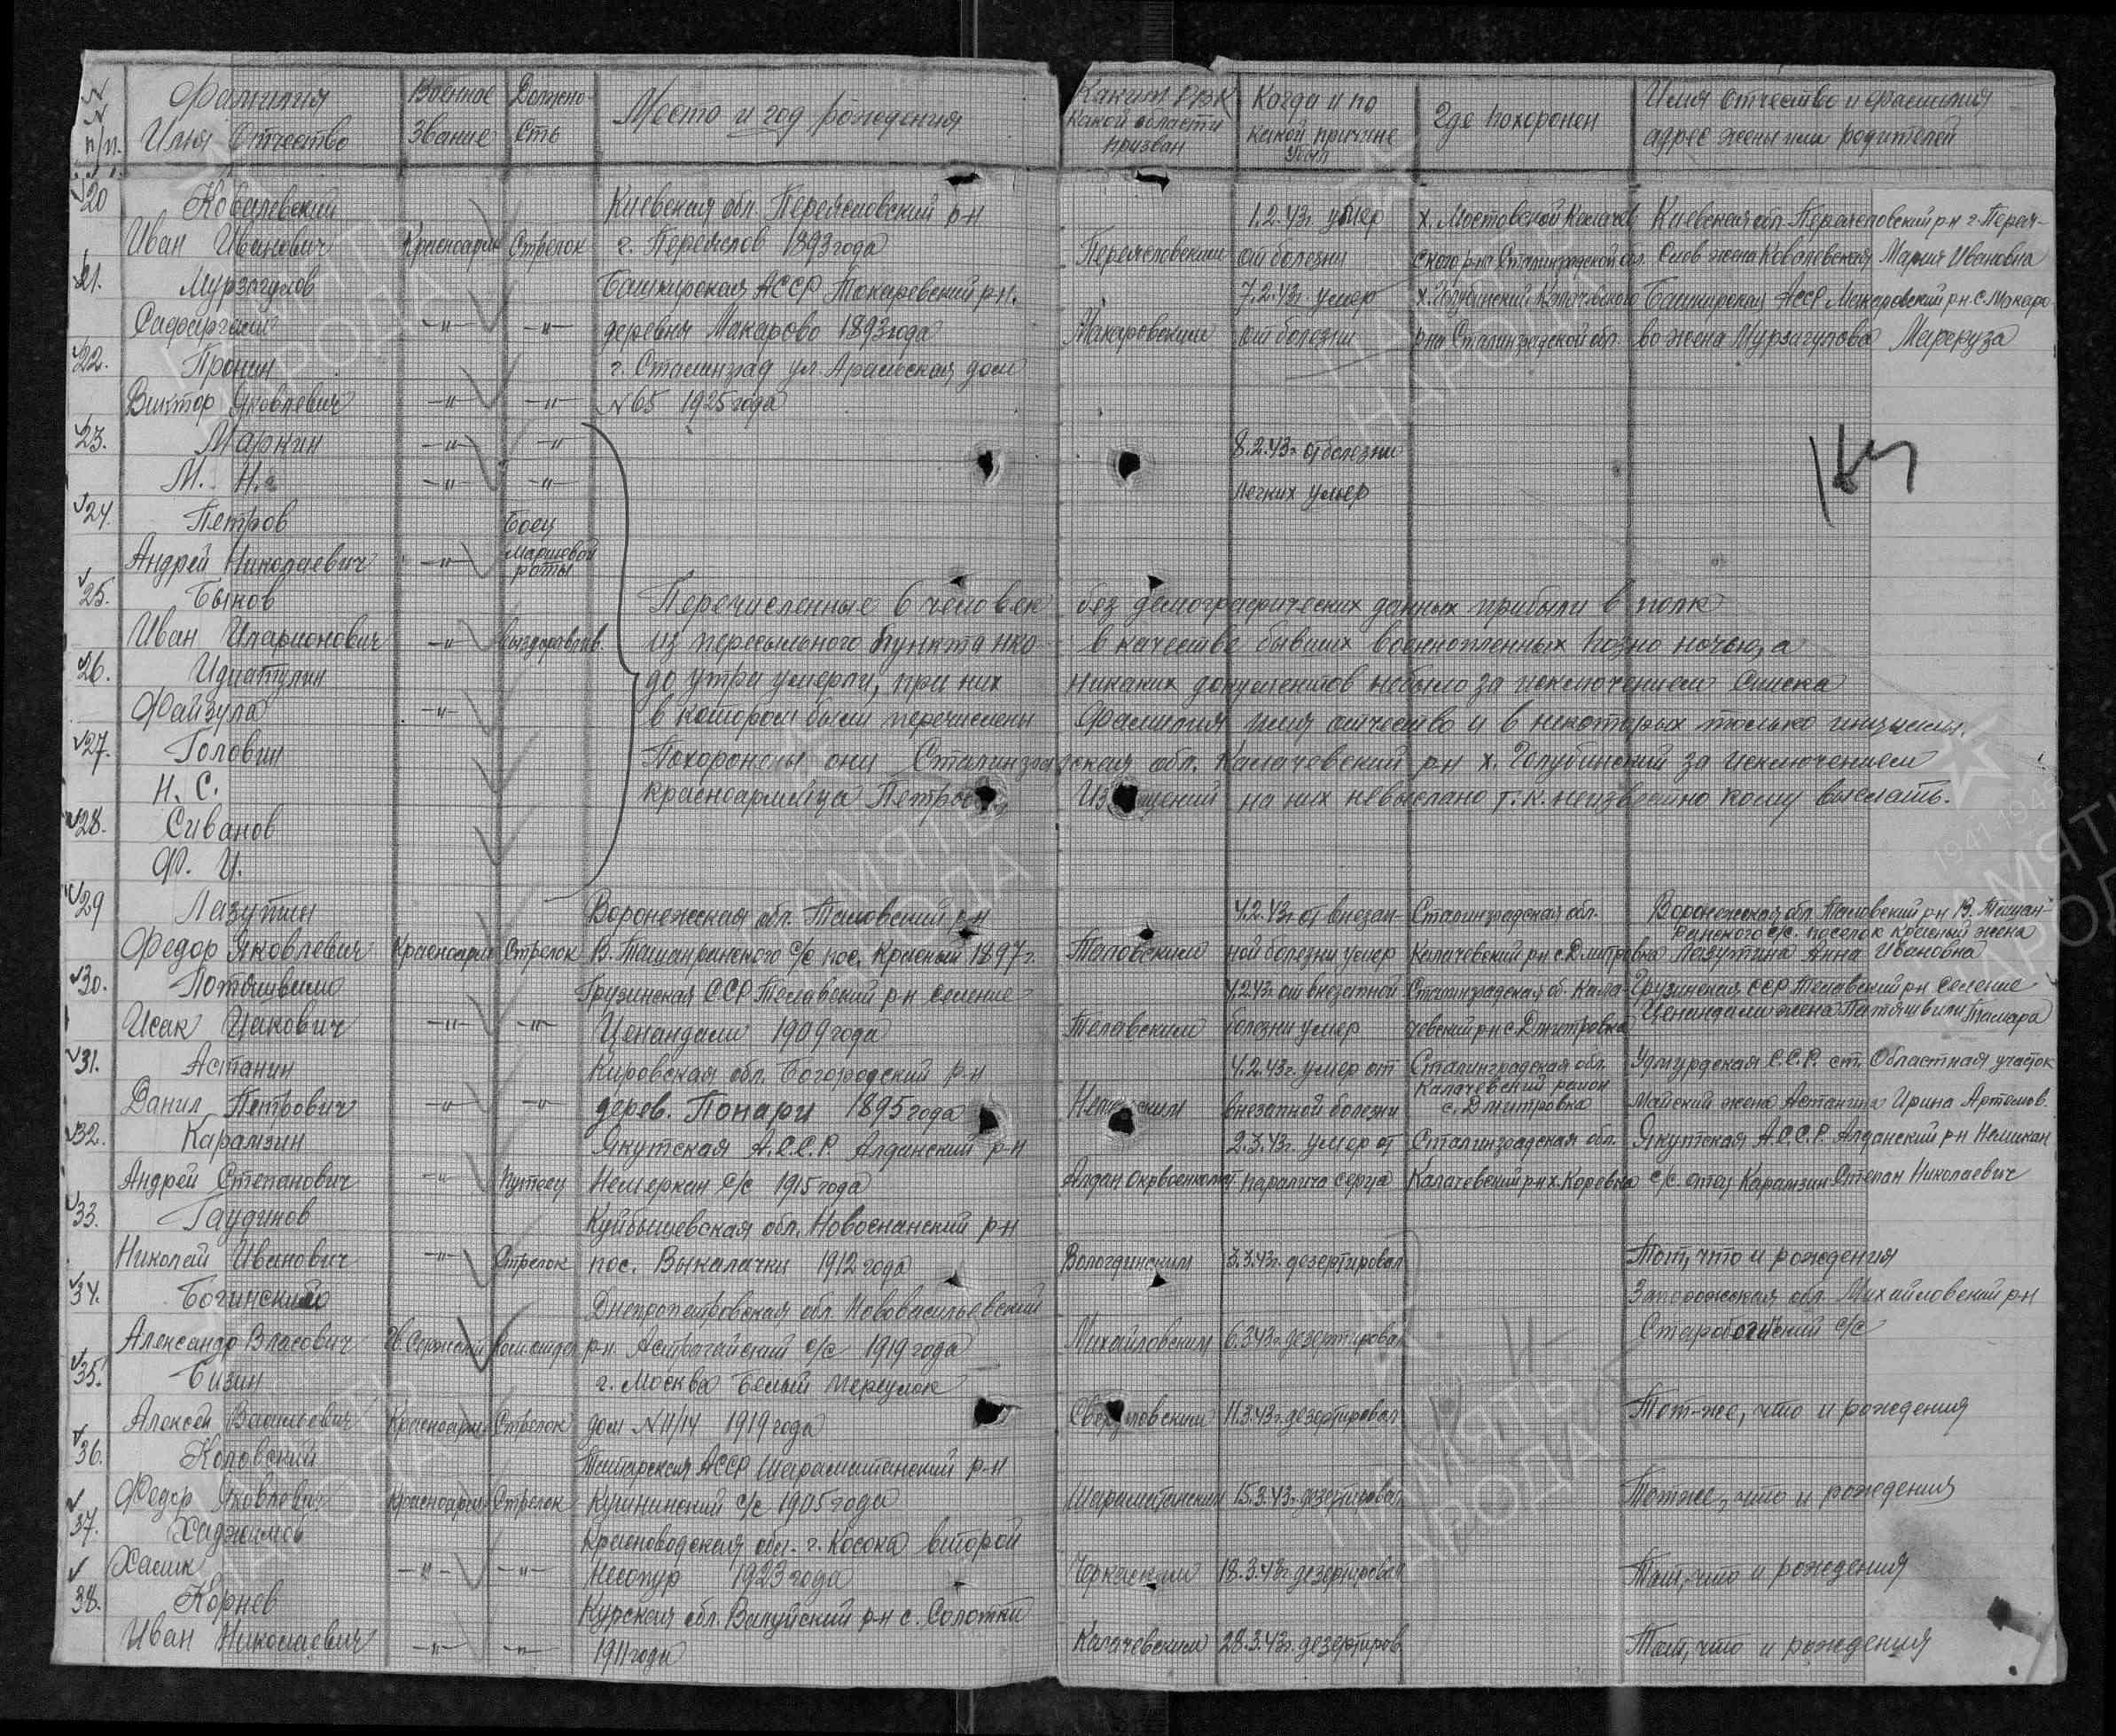 №№ п/п. Фамилия Имя Отчество Военное звание Должность Место и год рождения Каким РВК какой области призван Когда и по какой причине убыл Где похоронен Имя отчество и фамилия адрес жены или родителей
20 Ковалевский Киевская обл. Переяславский р-н 1.2.43г. умер х. Мостовской Калачев Киевская обл. Переяславский р-н г. Перея-
Иван Иванович Красноарм Стрелок г. Переяслов 1893 года Переясловским от болезни ского р-на Сталинградской обл. слов жена Ковалевская Мария Ивановна
21. Мурзагулов Башкирская АССР Макаровский р-н. 7.2.43г. умер х. Голубинский Калачевского Башкирская АССР Макаровский р-н с. Макаро
-"- -"- деревня Макарово 1893 года Макаровским от болезни р-на Сталинградской обл. во жена Мурзагулова
22. Пронин г. Сталинград ул. Аральская дом
Виктор Яковлевич -"- -"- №65 1925 года
23. Маркин -"- -"- 8.2.43г. от болезни
М. Н. -"- -"- легких умер
24. Петров Боец
Андрей Николаевич -"- маршевой роты
25. Быков Перечисленные 6 человек без демографических данных прибыли в полк
Иван Иларионович -"- выздоравлив. из пересыльного пункта НКО в качестве бывших военнопленных позно ночью, а
26. Идиатулин до утра умерли, при них никаких документов небыло за исключением списка
Файзула -"- в котором были перечислены фамилия имя отчество и в некоторых только инициалы.
27. Головин Похоронены они Сталинградская обл. Калачевский р-н х. Голубинский за исключением
Н. С. красноармейца Петрова Извещений на них невыслано т.к. неизвестно кому выслать.
28. Сиванов
Ф. И.
29 Лазутин Воронежская обл. Таловский р-н 4.2.43г. от внезап- Сталинградская обл. Воронежская обл. Таловский р-н В. Тишан-
Федор Яковлевич Красноарм Стрелок пос. Красный 1897 г. Таловским ной болезни умер Калачевский р-н с. Дмитровка с/с. поселок Красный жена Лазутина Анна Ивановна
30. Грузинская ССР Телавский р-н селение 4.2.43г от внезапной Сталинградская об. Кала- Грузинская ССР Телавский р-н селение
Исак -"- -"- Ценандали 1909 года Телавским болезни умер чевский р-н с. Дмитровка Ценандали жена Тамара
31. Астанин Кировская обл. Богородский р-н 4.2.43г. умер от Сталинградская обл. Удмурдская С.С.Р. ст. Областная участок
Данил Петрович -"- -"- дерев. Понари 1895 года внезапной болезни Калачевский район с. Дмитровка Майский жена Астанина Ирина Артемов.
32. Карамзин Якутская А.С.С.Р. Алданский р-н 2.3.43г. умер от Сталинградская обл. Якутская А.С.С.Р. Алданский р-н
Андрей Степанович -"- с/с 1915 года Алдан Окрвоенкомат паралича серца Калачевский р-н х. с/с. отец Карамзин Степан Николаевич
33. Гаудинов Куйбышевская обл. р-н
Николай Иванович -"- Стрелок пос. Выкалачки 1912 года 3.3.43г. дезертировал Тот, что и рождения
34. Днепропетровская обл. Нововасильевский Запорожская обл. Михайловский р-н
Александр Власович р-н с/с 1919 года Михайловским 6.3.43г. дезертировал с/с
35. Бизин г. Москва Белый переулок
Алексей Васильевич Красноарм Стрелок дом №11/14 1919 года Свердловским 11.3.43г. дезертировал Тот-же, что и рождения
36. Коловский Татарская АССР р-н
Федор Яковлевич Красноарм Стрелок с/с 1905 года 15.3.43г. дезертировал Тотже, что и рождения
37. обл. г. второй
Хасик -"- -"- 1923 года 18.3.43г. дезертировал Тот, что и рождения
38. Корнев Курская обл. Валуйский р-н с. Солотки
Иван Николаевич -"- -"- 1911 года Калачевским 28.3.43г. дезертиров Тот, что и рождения
ПАМЯТЬ НАРОДА
1941-1945